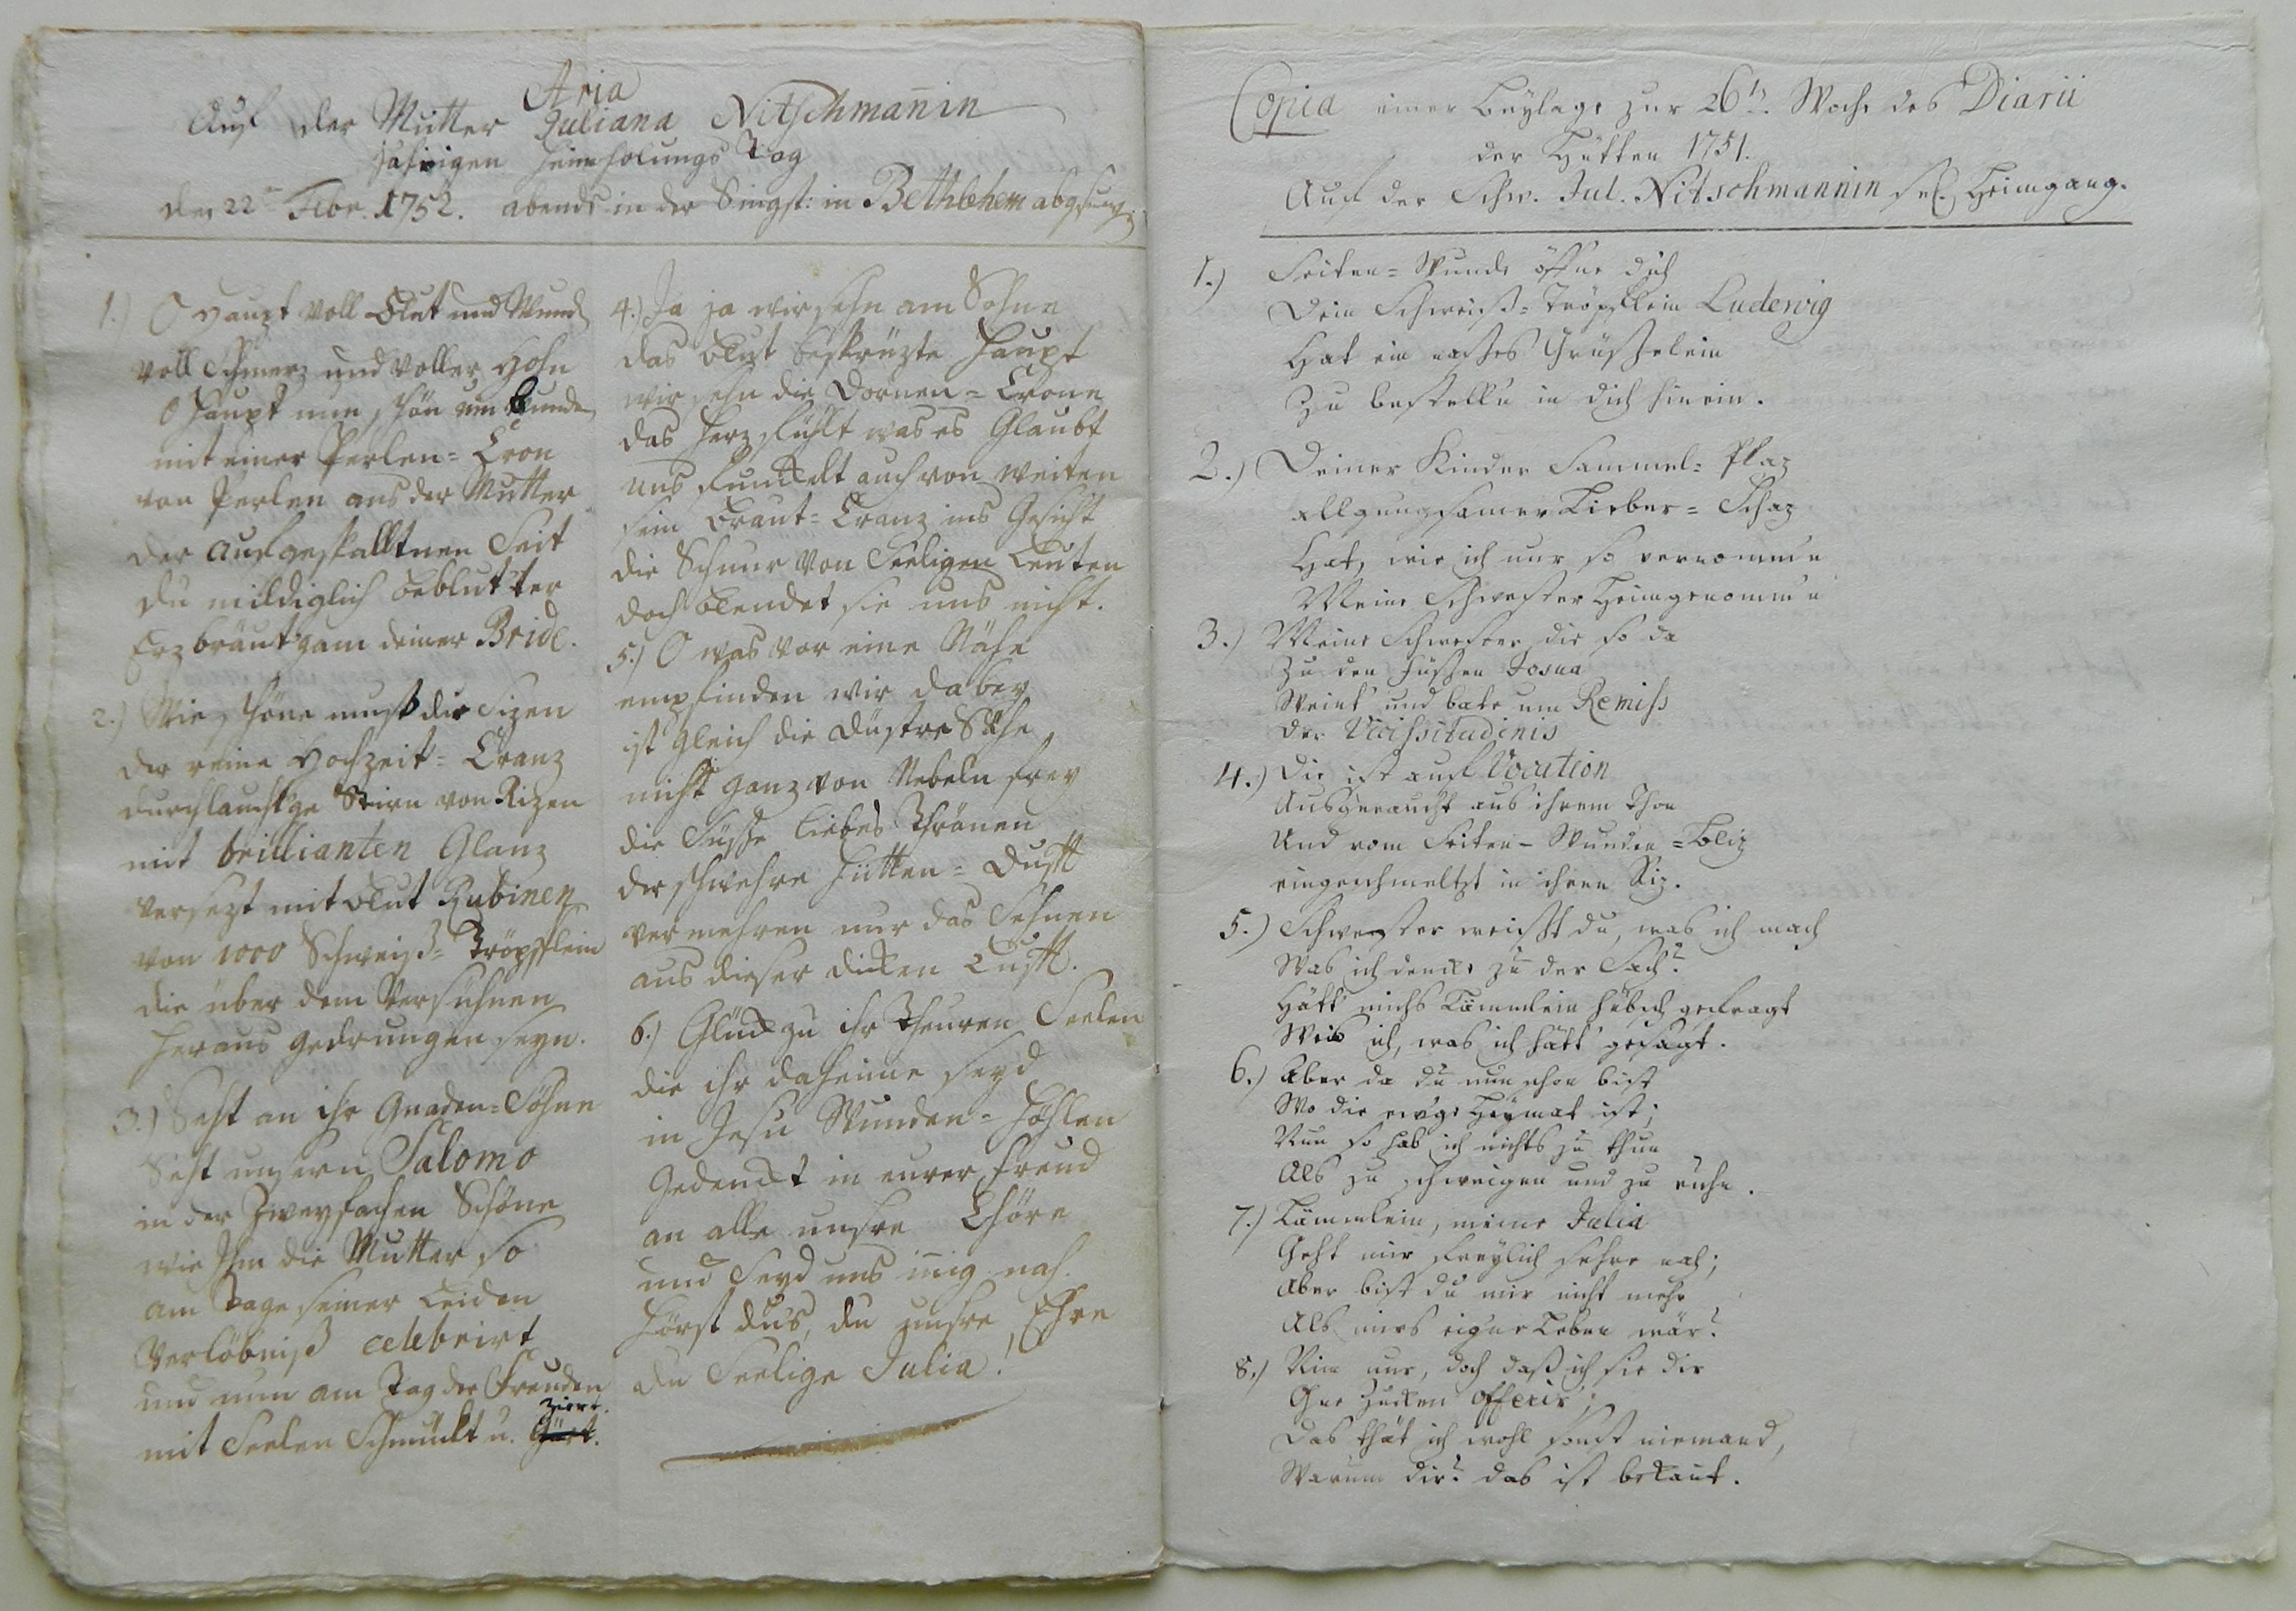 Aria
Auf der Mutter Juliana Nitschmañin
jährigen Heimholungs Tag
den 22ten Febr. 1752. abends in der Singst: in Bethlehem abgesung.
1.) O Haupt voll Blut und Wund
voll Schmerz und voller Hohn
O Haupt nun schön umbunden
mit einer Perlen-Cron
von Perlen aus der Mutter
der aufgespalltnen Seit
du mildiglich beblut'ter
Erzbräut'gam deiner Bride.
2.) Wie schöne muß dir sizen
der reine Hochzeit-Cranz
durchlaucht'ge Stirn von Rizen
mit brillianten Glanz
versezt mit Blut Rubinen
von 1000 Schweiß-Tröpflein
die über dem Versühnen
heraus gedrungen seyn.
3.) Seht an ihr Gnaden-Söhne
Seht unsern Salomo
in der zweyfachen Schöne
wie Ihn die Mutter so
am Tage seiner Leiden
Verlöbniß celebrirt
und nun am Tag der Freuden
ziert.
mit Seelen Schmückt u.
4.) Ja ja wir sehn am Sohne
das Blut besprüzte Haupt
wir sehn die Dornen-Crone
das Herz fühlt was es Glaubt
uns funckelt auch von weiten
sein Braut-Cranz ins Gesicht
die Schnur von Seeligen Leuten
doch blendet sie uns nicht.
5.) O was vor eine Nähe
empfinden wir dabey
ist gleich die düstre Sähe
nicht ganz von Nebeln frey
die Süsse Liebes Thränen
der schwehre Hütten-Dufft
vermehren nur das Sehnen
aus dieser dicken Lufft.
6.) Glück zu ihr Theuren Seelen
die ihr daheime seyd
in Jesu Wunden-Höhlen
Gedenckt in eurer Freud
an alle unsre Chöre
und seyd uns iñig nah
Hörst du's, du unsre Ehre
du Seelige Julia!
Copia einer Beylage zur 26tn. Woche des Diarii
der Hütten 1751.
Auf der Schw. Jul. Nitschmannin sel. Heimgang.
1.) Seiten-Wunde öffne dich
Dein Schweiß-Tröpflein Ludewig
Hat ein nasses Grüsselein
Zu bestelln in dich hinein.
2.) Deiner Kinder Sammel-Plaz
allgenugsamer Liebes-Schaz
Hat, wie ich nur so vernomm'n
Meine Schwester Heimgenomm'n
3.) Meine Schwester die so da
Zu den Füssen Josua
Weint' und bate um Remiss
der Vicissitudinis
4.) Die ist auf Vocation
Ausgeraucht aus ihrem Thon
Und vom Seiten-Wunden-Bliz
eingeschmeltzt in ihren Riz.
5.) Schwester weißt du, was ich mach
Was ich dencke zu der Sach?
Hätt' michs Lämmlein hübsch gefragt
Weis ich, was ich hätt' gesagt.
6.) Aber da du nun schon bist
Wo die ew'ge Heymat ist;
Nun so hab ich nichts zu thun
Als zu schweigen und zu ruhn.
7.) Lämmlein, meine Julia
Geht mir freylich sehre nah;
Aber bist du mir nicht mehr
Als mirs eig'ne Leben wär?
8.) Nim nur, doch daß ich sie dir
Ohne Zucken offerir';
Das thät ich wohl sonst niemand,
Warum dir? das ist bekañt.